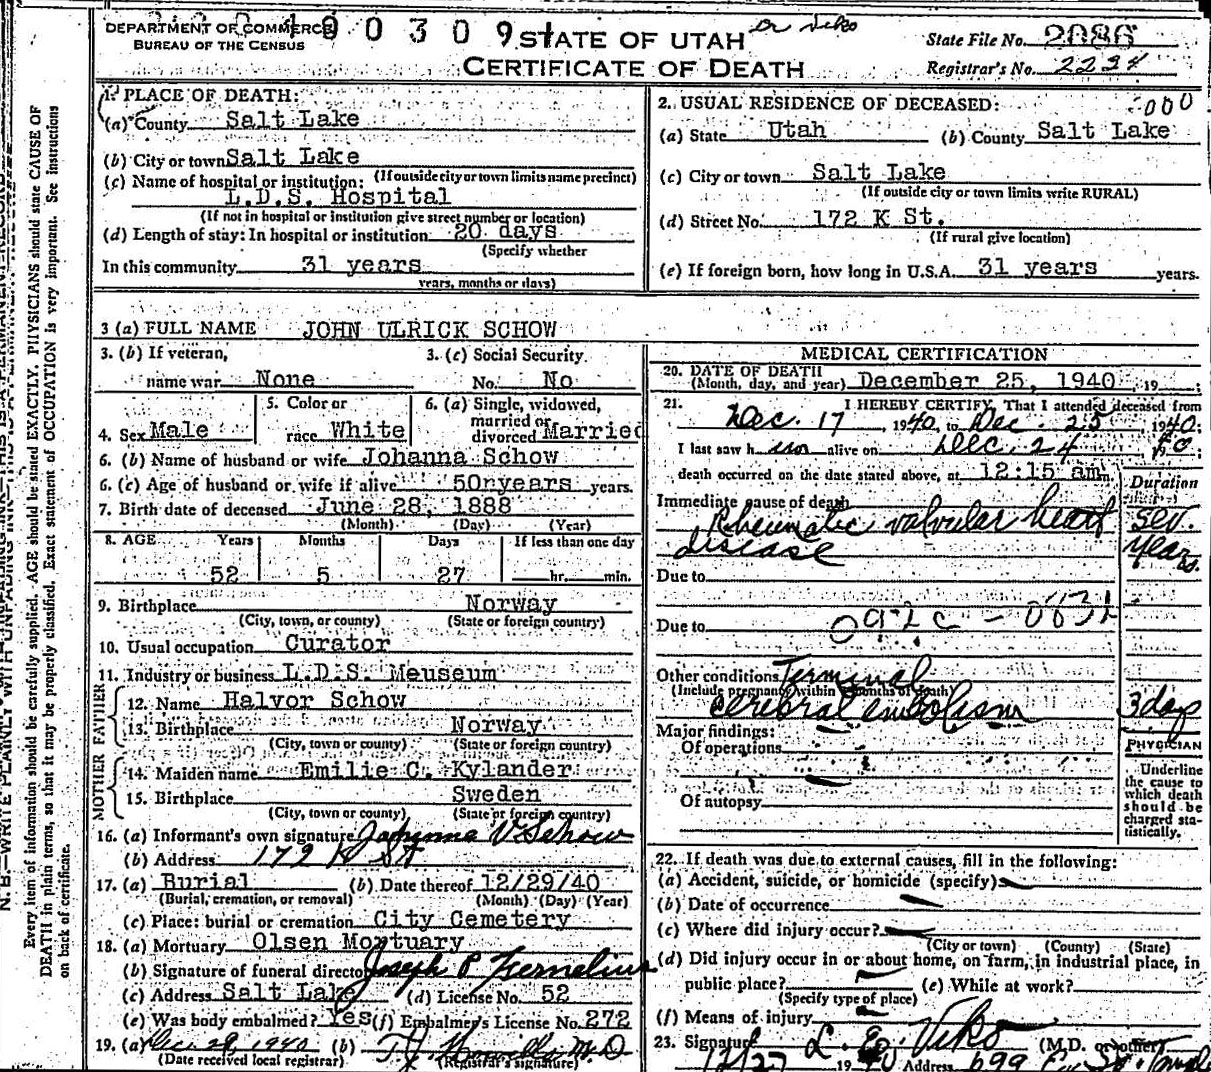 DEPARTMENT OF COMMERCE
BUREAU OF THE CENSUS
0 0 3 0 9
STATE OF UTAH
CERTIFICATE OF DEATH
or Viko
State File No. 2086
Registrar's No. 2234
1. PLACE OF DEATH:
(a) County Salt Lake
(b) City or town Salt Lake
(If outside city or town limits name precinct)
(c) Name of hospital or institution:
L.D.S. Hospital
(If not in hospital or institution give street number or location)
(d) Length of stay: In hospital or institution 20 days
(Specify whether
In this community 31 years
years, months or days)
2. USUAL RESIDENCE OF DECEASED: 000
(a) State Utah (b) County Salt Lake
(c) City or town Salt Lake
(If outside city or town limits write RURAL)
(d) Street No. 172 K St.
(If rural give location)
(e) If foreign born, how long in U.S.A. 31 years years.
3 (a) FULL NAME JOHN ULRICK SCHOW
3. (b) If veteran,
name war None
3. (c) Social Security
No. No
4. Sex Male
5. Color or
race White
6. (a) Single, widowed,
married or
divorced Married
6. (b) Name of husband or wife Johanna Schow
6. (c) Age of husband or wife if alive 50 years years.
7. Birth date of deceased June 28, 1888
(Month) (Day) (Year)
8. AGE Years Months Days If less than one day
52 5 27 hr. min.
9. Birthplace Norway
(City, town, or county) (State or foreign country)
10. Usual occupation Curator
11. Industry or business L.D.S. Meuseum
FATHER
12. Name Halvor Schow
13. Birthplace Norway
(City, town or county) (State or foreign country)
MOTHER
14. Maiden name Emilie C. Kylander
15. Birthplace Sweden
(City, town or county) (State or foreign country)
16. (a) Informant's own signature Johanna V. Schow
(b) Address 172 K St
17. (a) Burial (b) Date thereof 12/29/40
(Burial, cremation, or removal) (Month) (Day) (Year)
(c) Place: burial or cremation City Cemetery
18. (a) Mortuary Olsen Mortuary
(b) Signature of funeral director Joseph P
(c) Address Salt Lake (d) License No. 52
(e) Was body embalmed? Yes (f) Embalmer's License No. 272
19. (a) Dec. 28, 1940 (b) M.D
(Date received local registrar) (Registrar's signature)
MEDICAL CERTIFICATION
20. DATE OF DEATH
(Month, day, and year) December 25, 1940, 19
21. I HEREBY CERTIFY, That I attended deceased from
Dec. 17, 1940, to Dec. 25 1940;
I last saw h im alive on Dec. 24 40;
death occurred on the date stated above, at 12:15 am
Duration
Immediate cause of death
Rheumatic valvular heart sev.
disease years.
Due to
Due to 092c - 0831
Other conditions Terminal
(Include pregnancy within 3 months of death)
cerebral embolism 3 days
Major findings:
Of operations
Of autopsy
PHYSICIAN
Underline
the cause to
which death
should be
charged sta-
tistically.
22. If death was due to external causes, fill in the following:
(a) Accident, suicide, or homicide (specify)
(b) Date of occurrence
(c) Where did injury occur?
(City or town) (County) (State)
(d) Did injury occur in or about home, on farm, in industrial place, in
public place? (e) While at work?
(Specify type of place)
(f) Means of injury
23. Signature L. E. Viko (M.D. or other)
12/27 1940 Address 699 Temple
N. B.—WRITE PLAINLY WITH UNFADING INK—THIS IS A PERMANENT RECORD
Every item of information should be carefully supplied. AGE should be stated EXACTLY. PHYSICIANS should state CAUSE OF
DEATH in plain terms, so that it may be properly classified. Exact statement of OCCUPATION is very important. See instructions
on back of certificate.